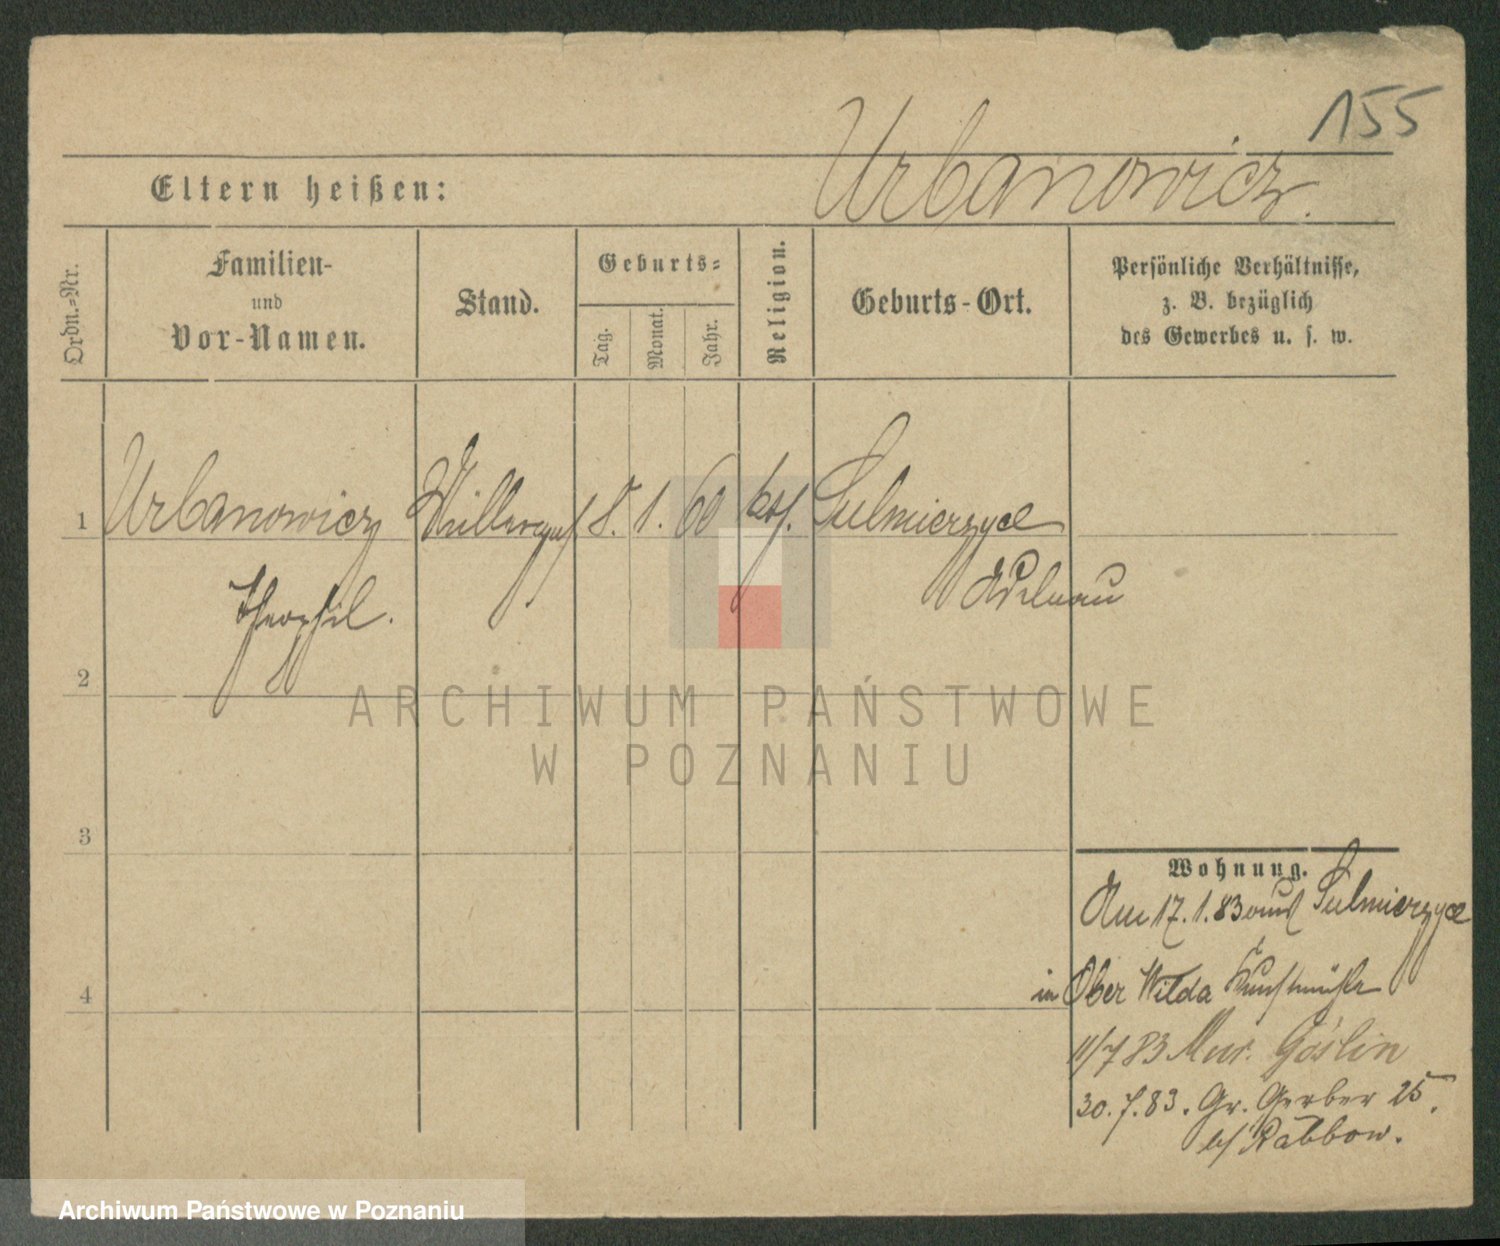 155
Urbanowicz.
Eltern heißen:
Ordn.-Nr.
Familien-
und
Vor-Namen.
Stand.
Geburts-
Tag.
Monat.
Jahr.
Religion.
Geburts-Ort.
Persönliche Verhältnisse,
z. B. bezüglich
des Gewerbes u. s. w.
1 Urbanowicz Müllerges. 8. 1. 60 kth. Sulmierzyce
Theophil. Adelnau
2
ARCHIWUM PAŃSTWOWE
W POZNANIU
3
Wohnung.
Am 17.1.83 aus Sulmierzyce
4
in Ober Wilda Kunstmühle
11/7 83 Mur. Goslin
30.7.83. Gr. Gerber 25.
b/ Rabbow.
Archiwum Państwowe w Poznaniu